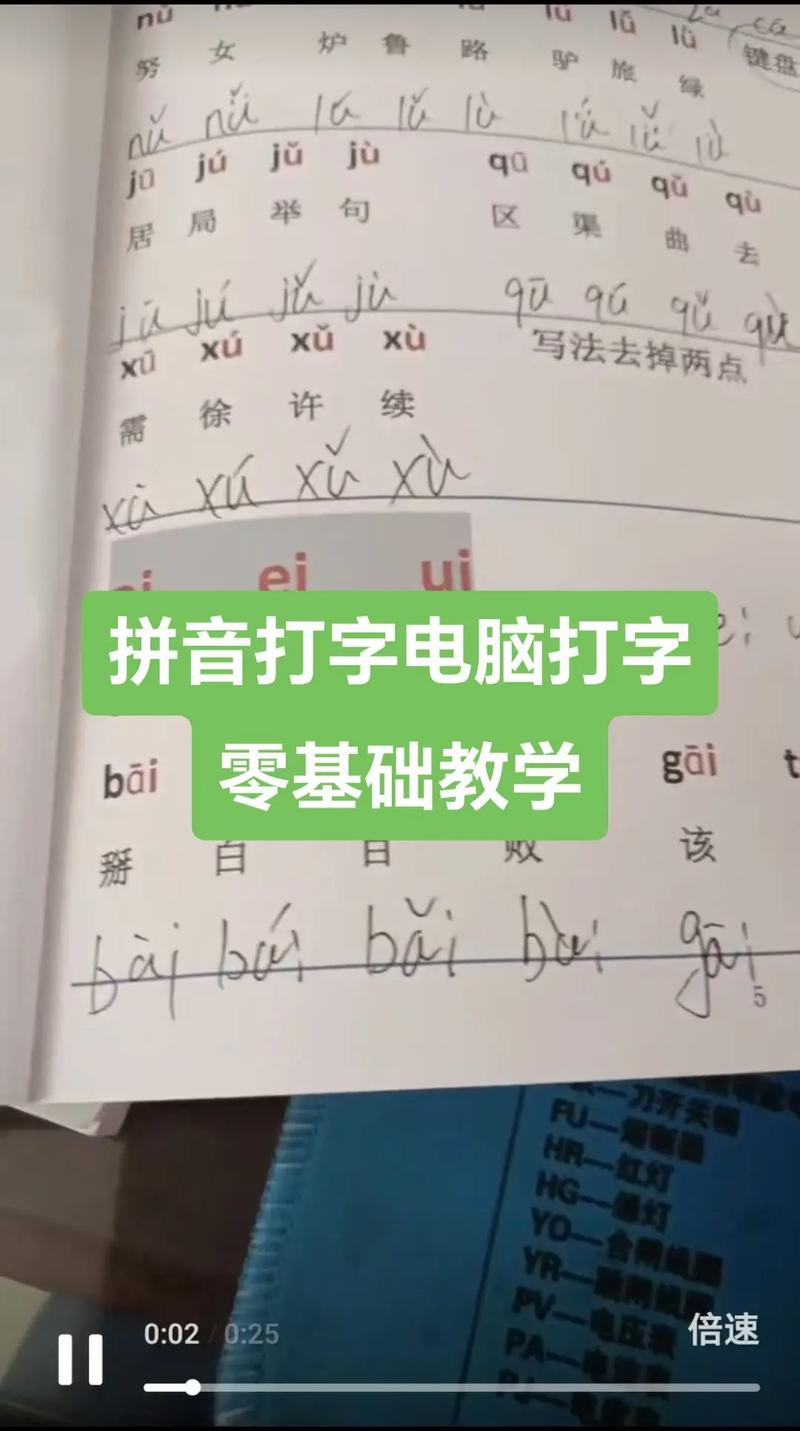 努 女 炉 鲁 路 驴 旅 绿 键盘
jū jú jǔ jù qū qú qǔ qù
居 局 举 句 区 渠 曲 去
jū jú jǔ jù qū qú qǔ qù
xū xú xǔ xù 写法去掉两点
需 徐 许 续
xù xú xǔ xù
ei ui
拼音打字电脑打字
零基础教学
bāi gāi
掰 败 该
bài bái bǎi bài gāi
5
刀开关
FU—熔断器
HR—红灯
HG—绿灯
YO—合闸线圈
YR—跳闸线圈
PV—电压表
PA—电流表
0:02 / 0:25
倍速